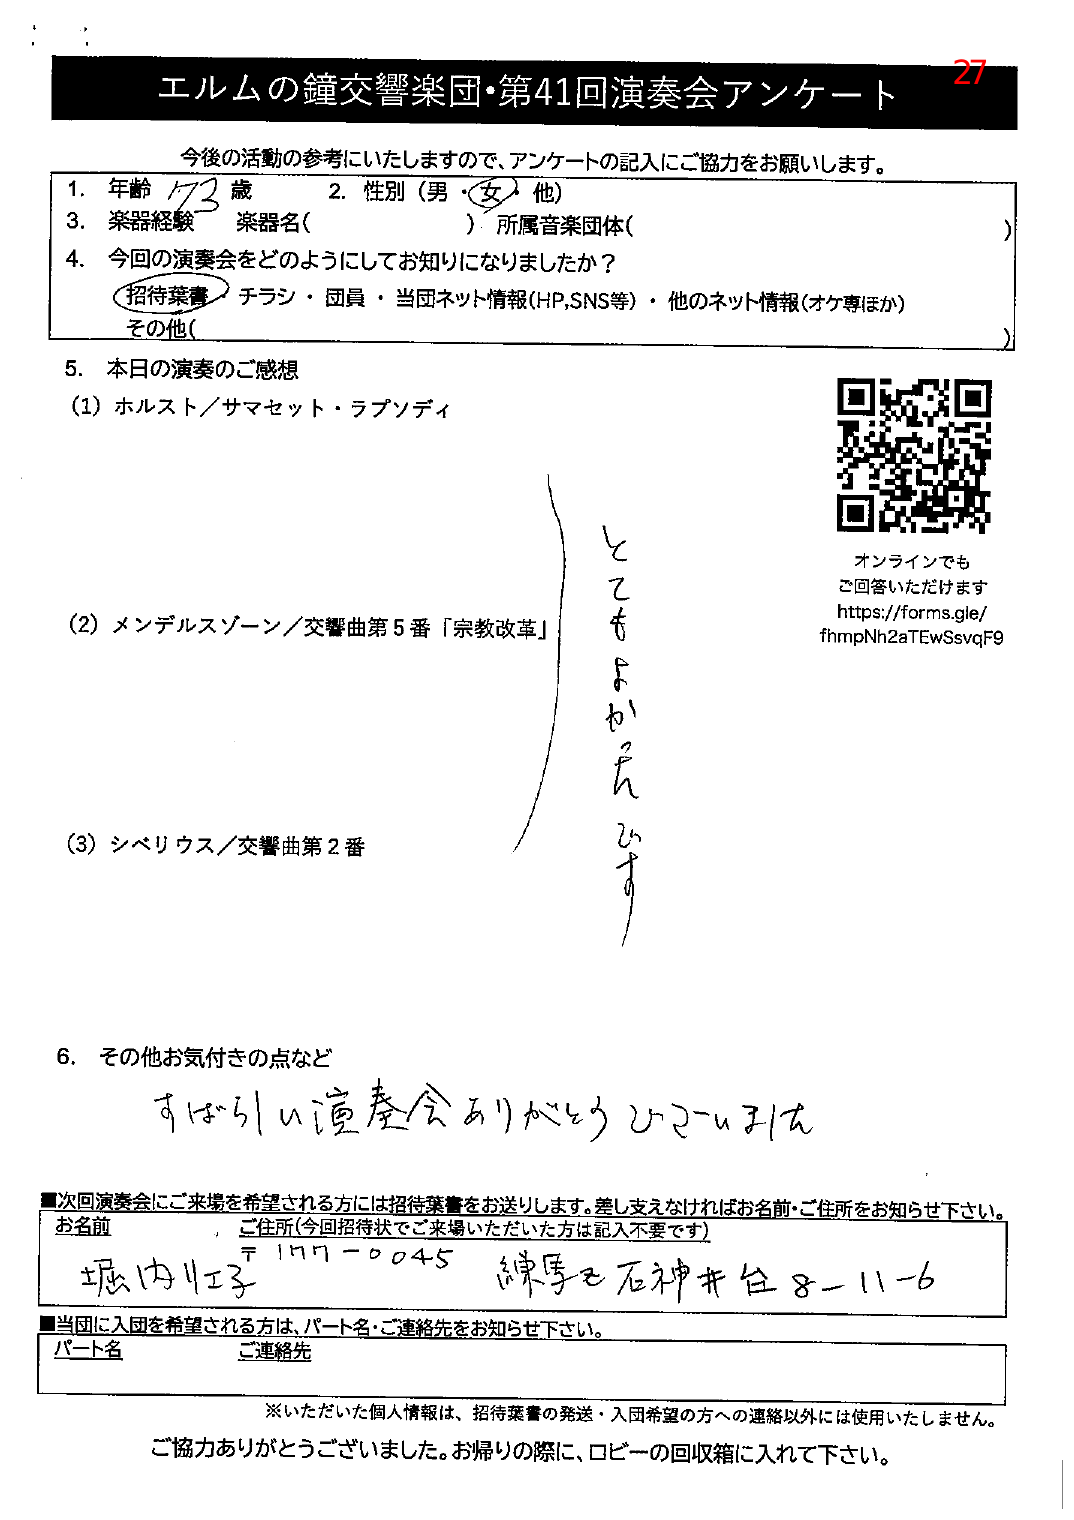 27
エルムの鐘交響楽団・第41回演奏会アンケート
今後の活動の参考にいたしますので、アンケートの記入にご協力をお願いします。
1. 年齢 73 歳 2. 性別 (男 ・ 女 ・ 他)
3. 楽器経験 楽器名( ) 所属音楽団体( )
4. 今回の演奏会をどのようにしてお知りになりましたか？
招待葉書 ・ チラシ ・ 団員 ・ 当団ネット情報(HP,SNS等) ・ 他のネット情報(オケ専ほか)
その他( )
5. 本日の演奏のご感想
(1) ホルスト／サマセット・ラプソディ
(2) メンデルスゾーン／交響曲第5番「宗教改革」
(3) シベリウス／交響曲第2番
とてもよかったです
オンラインでも
ご回答いただけます
https://forms.gle/
fhmpNh2aTEwSsvqF9
6. その他お気付きの点など
すばらしい演奏会ありがとうございました
■次回演奏会にご来場を希望される方には招待葉書をお送りします。差し支えなければお名前・ご住所をお知らせ下さい。
お名前 ご住所(今回招待状でご来場いただいた方は記入不要です)
〒177-0045
堀内 練馬区石神井台8-11-6
■当団に入団を希望される方は、パート名・ご連絡先をお知らせ下さい。
パート名 ご連絡先
※いただいた個人情報は、招待葉書の発送・入団希望の方への連絡以外には使用いたしません。
ご協力ありがとうございました。お帰りの際に、ロビーの回収箱に入れて下さい。